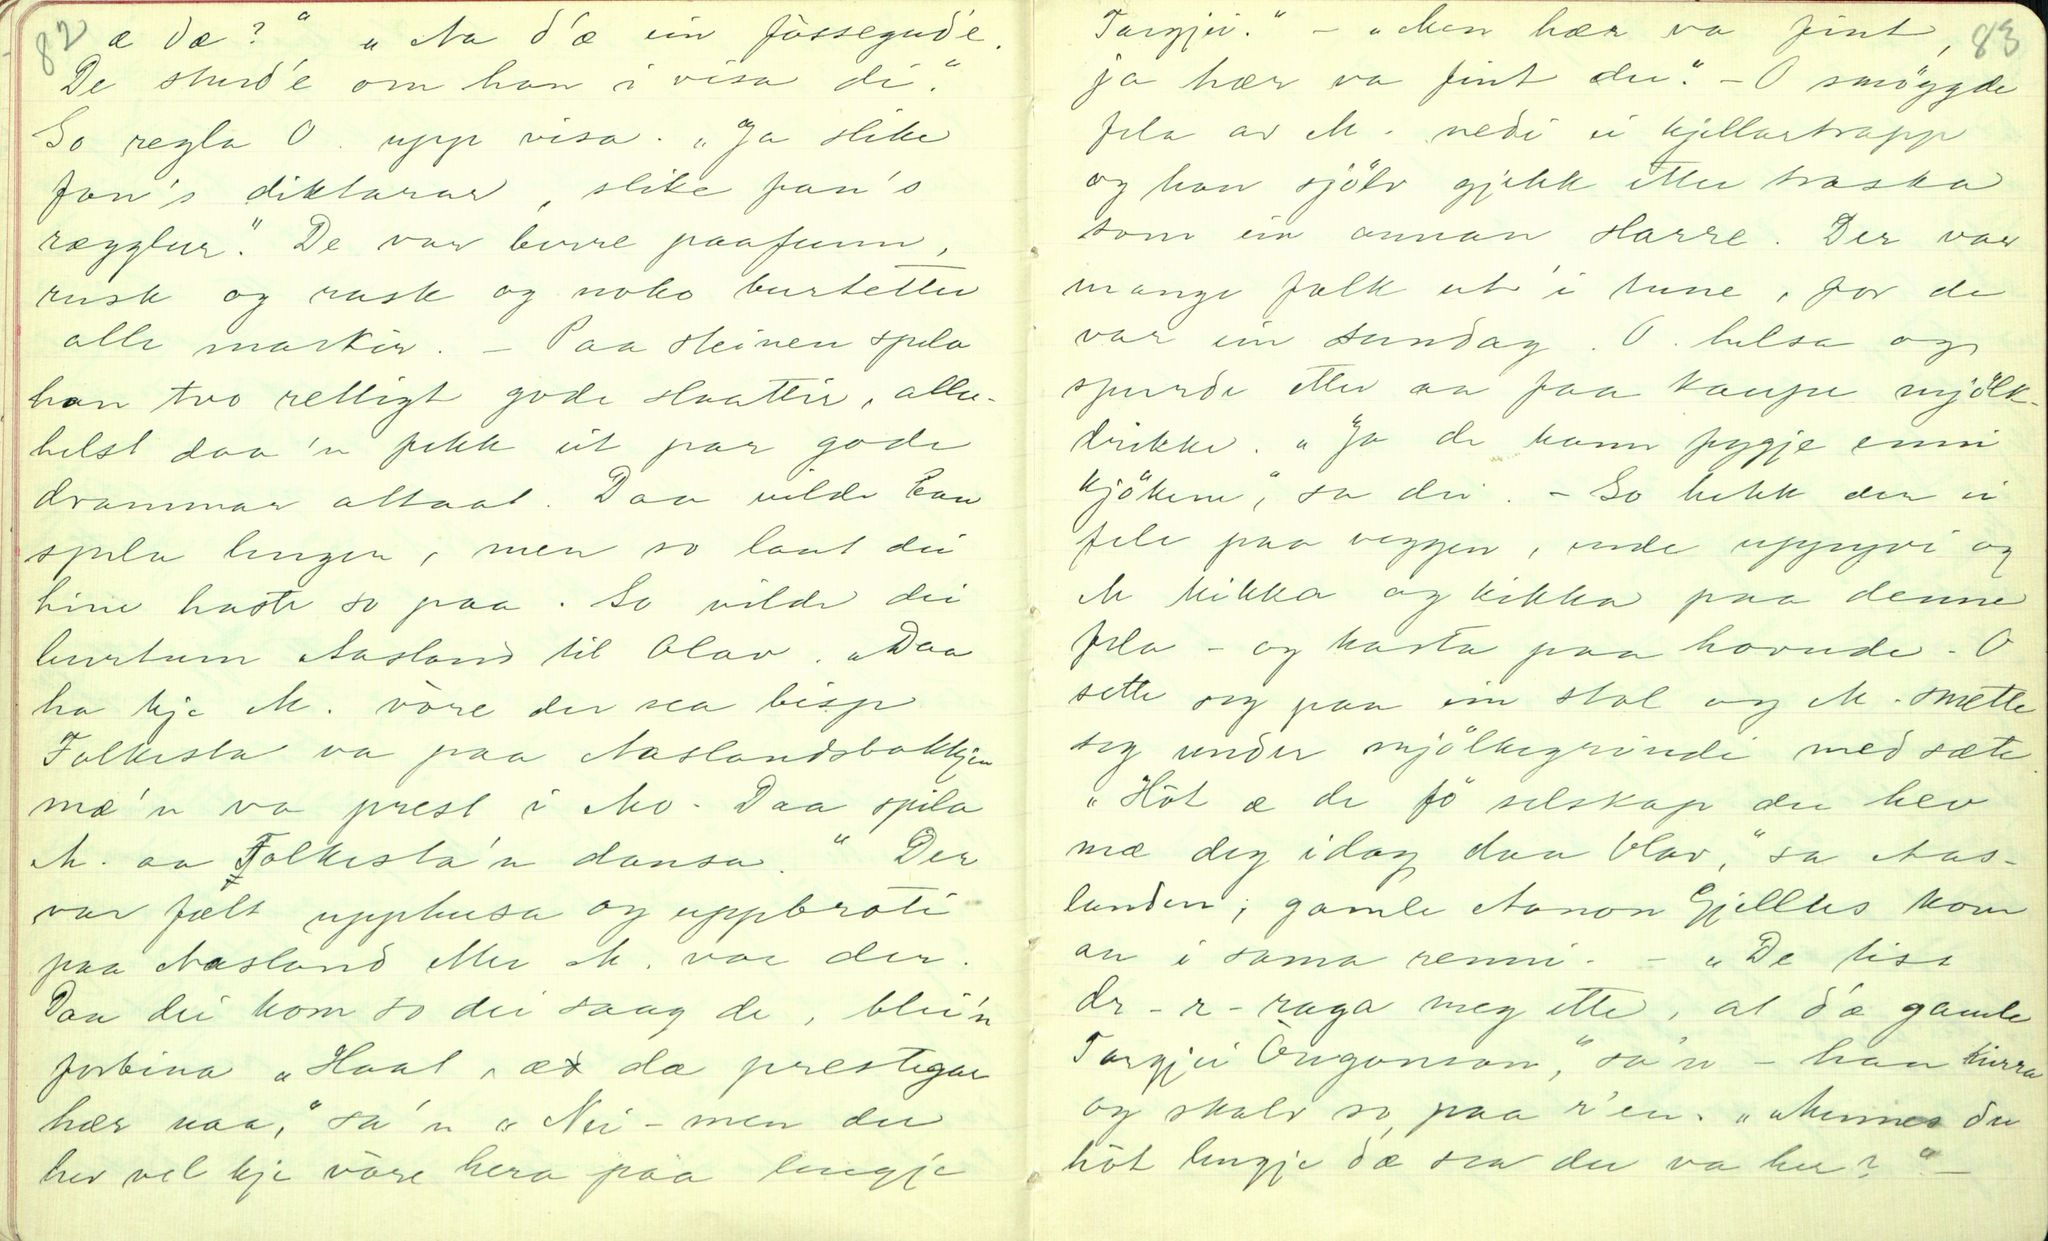 82
æ dæ?" "Aa d'æ ein fossegud'e.
De stend'e om han i visa di."
So regla O. upp visa. "Ja slike
fan's diktarar, slike fan's
rægglur." De var berre paafunn,
rusk og rask og noko burtetter
alle markir. - Paa steinen spela
han tvo rettigt gode slaattir, alle-
helst daa'n fekk eit par gode
drammar attaat. Daa vilde han
spela lenger, men so laat dei
hine haste so paa. So vilde dei
burtum Aasland til Olav. "Daa
ha kje M. vòre der sea bisp
Folkesta va paa Aaslandsbakkjen
mæ'n va prest i Mo. Daa spila
M. aa Folkesta'n dansa." Der
var fælt upphusa og uppbrøti
paa Aasland etter M. var der.
Daa dei kom so dei saag de, blei'n
forbina "Haat, æ dæ prestegar
hær naa," sa'n "Nei - men du
hev vel kje vòre hera paa lengje
83
Targjei." - "Men hær va fint,
ja hær va fint du." - O smöygde
fela av M. nedi ei kjellartrapp
og han sjölv gjekk etter traska
som ein annan Harre. Der var
mange folk ut i tune, for de
var ein sundag. O. helsa og
spurde etter aa faa kaupe mjölk-
drikke. "Ja de kann fygje enni
kjökene," sa dei. - So hekk der ei
fele paa veggen, ende uppyvi og
M kikka og kikka paa denne
fela - og kasta paa hovude. O
sette seg paa ein stol og M. smette
seg under mjölkegrindi med sæte.
"Hòt æ de fö selskap du hev
mæ deg idag daa Olav," sa Aas-
landen; gamle Aanon Gjelhus kom
an i sama renni. - "De lise
dr-r-raga meg ette, at d'æ gamle
Targjei Öygonson," sa'n - han kurra
og skalv so paa r'en. "Minnes du
hòt lengje dæ sea du va her?" -